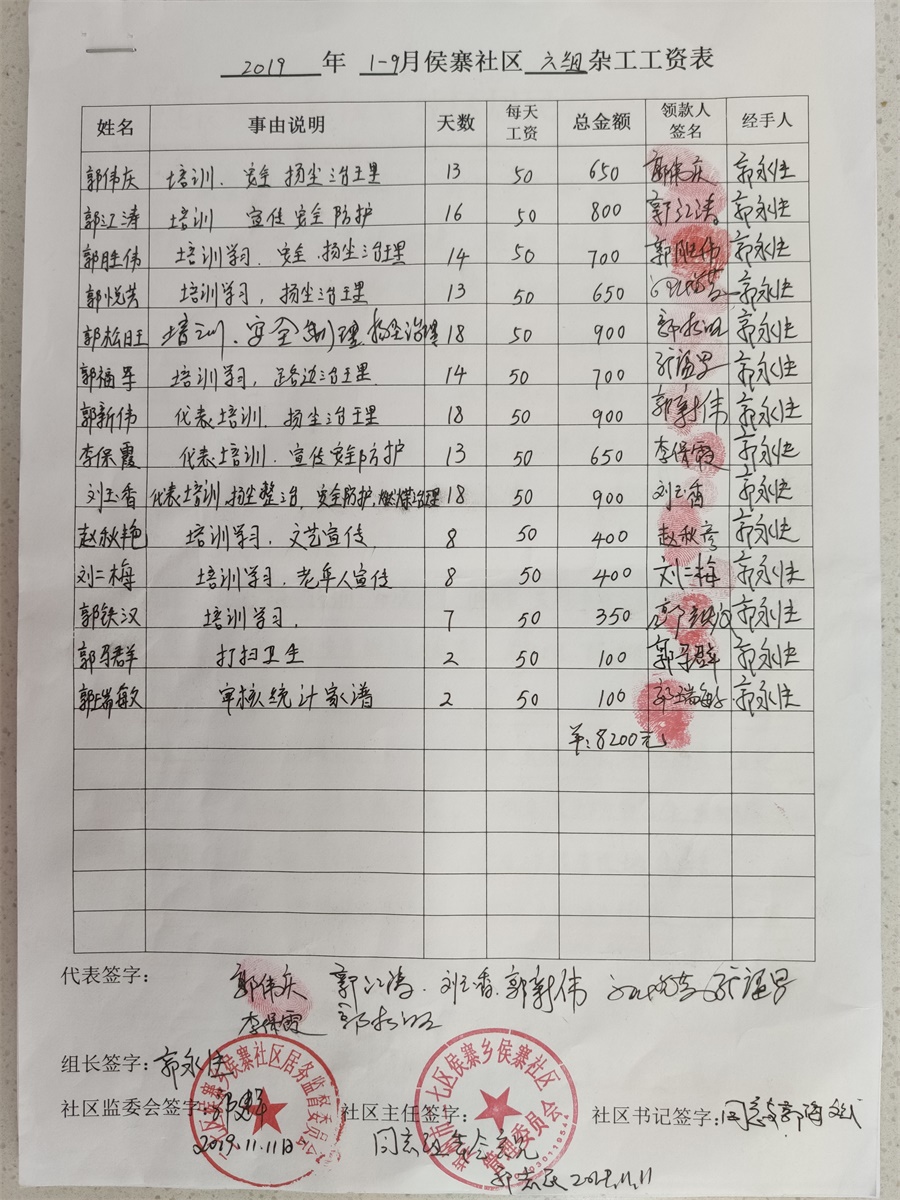 2019 年 1-9月侯寨社区 六组杂工工资表
姓名 事由说明 天数 每天工资 总金额 领款人签名 经手人
郭伟庆 培训、安全 扬尘治理 13 50 650 郭伟庆 郭永佳
郭江涛 培训 宣传安全防护 16 50 800 郭江涛 郭永佳
郭胜伟 培训学习、安全、扬尘治理 14 50 700 郭胜伟 郭永佳
郭悦芳 培训学习,扬尘治理 13 50 650 郭永佳
郭松旺 培训、安全 扬尘治理 18 50 900 郭松旺 郭永佳
郭福军 培训学习,路边治理 14 50 700 郭永佳
郭新伟 代表培训、扬尘治理 18 50 900 郭新伟 郭永佳
李保霞 代表培训、宣传安全防护 13 50 650 李保霞 郭永佳
刘玉香 代表培训、扬尘整治、安全防护,燃煤治理 18 50 900 刘玉香 郭永佳
赵秋艳 培训学习、文艺宣传 8 50 400 赵秋彦 郭永佳
刘二梅 培训学习、老年人宣传 8 50 400 刘二梅 郭永佳
郭铁汉 培训学习、 7 50 350 郭铁汉 郭永佳
郭 群 打扫卫生 2 50 100 郭 群 郭永佳
郭瑞敏 审核统计家谱 2 50 100 郭瑞敏 郭永佳
羊:8200元
代表签字:
郭伟庆 郭江涛、刘玉香、郭新伟
李保霞 郭松旺
组长签字:郭永佳
社区监委会签字: 社区主任签字: 社区书记签字:同意
2019.11.11日 同意
侯寨乡侯寨社区居务监督委员会
七区侯寨乡侯寨社区
管理委员会